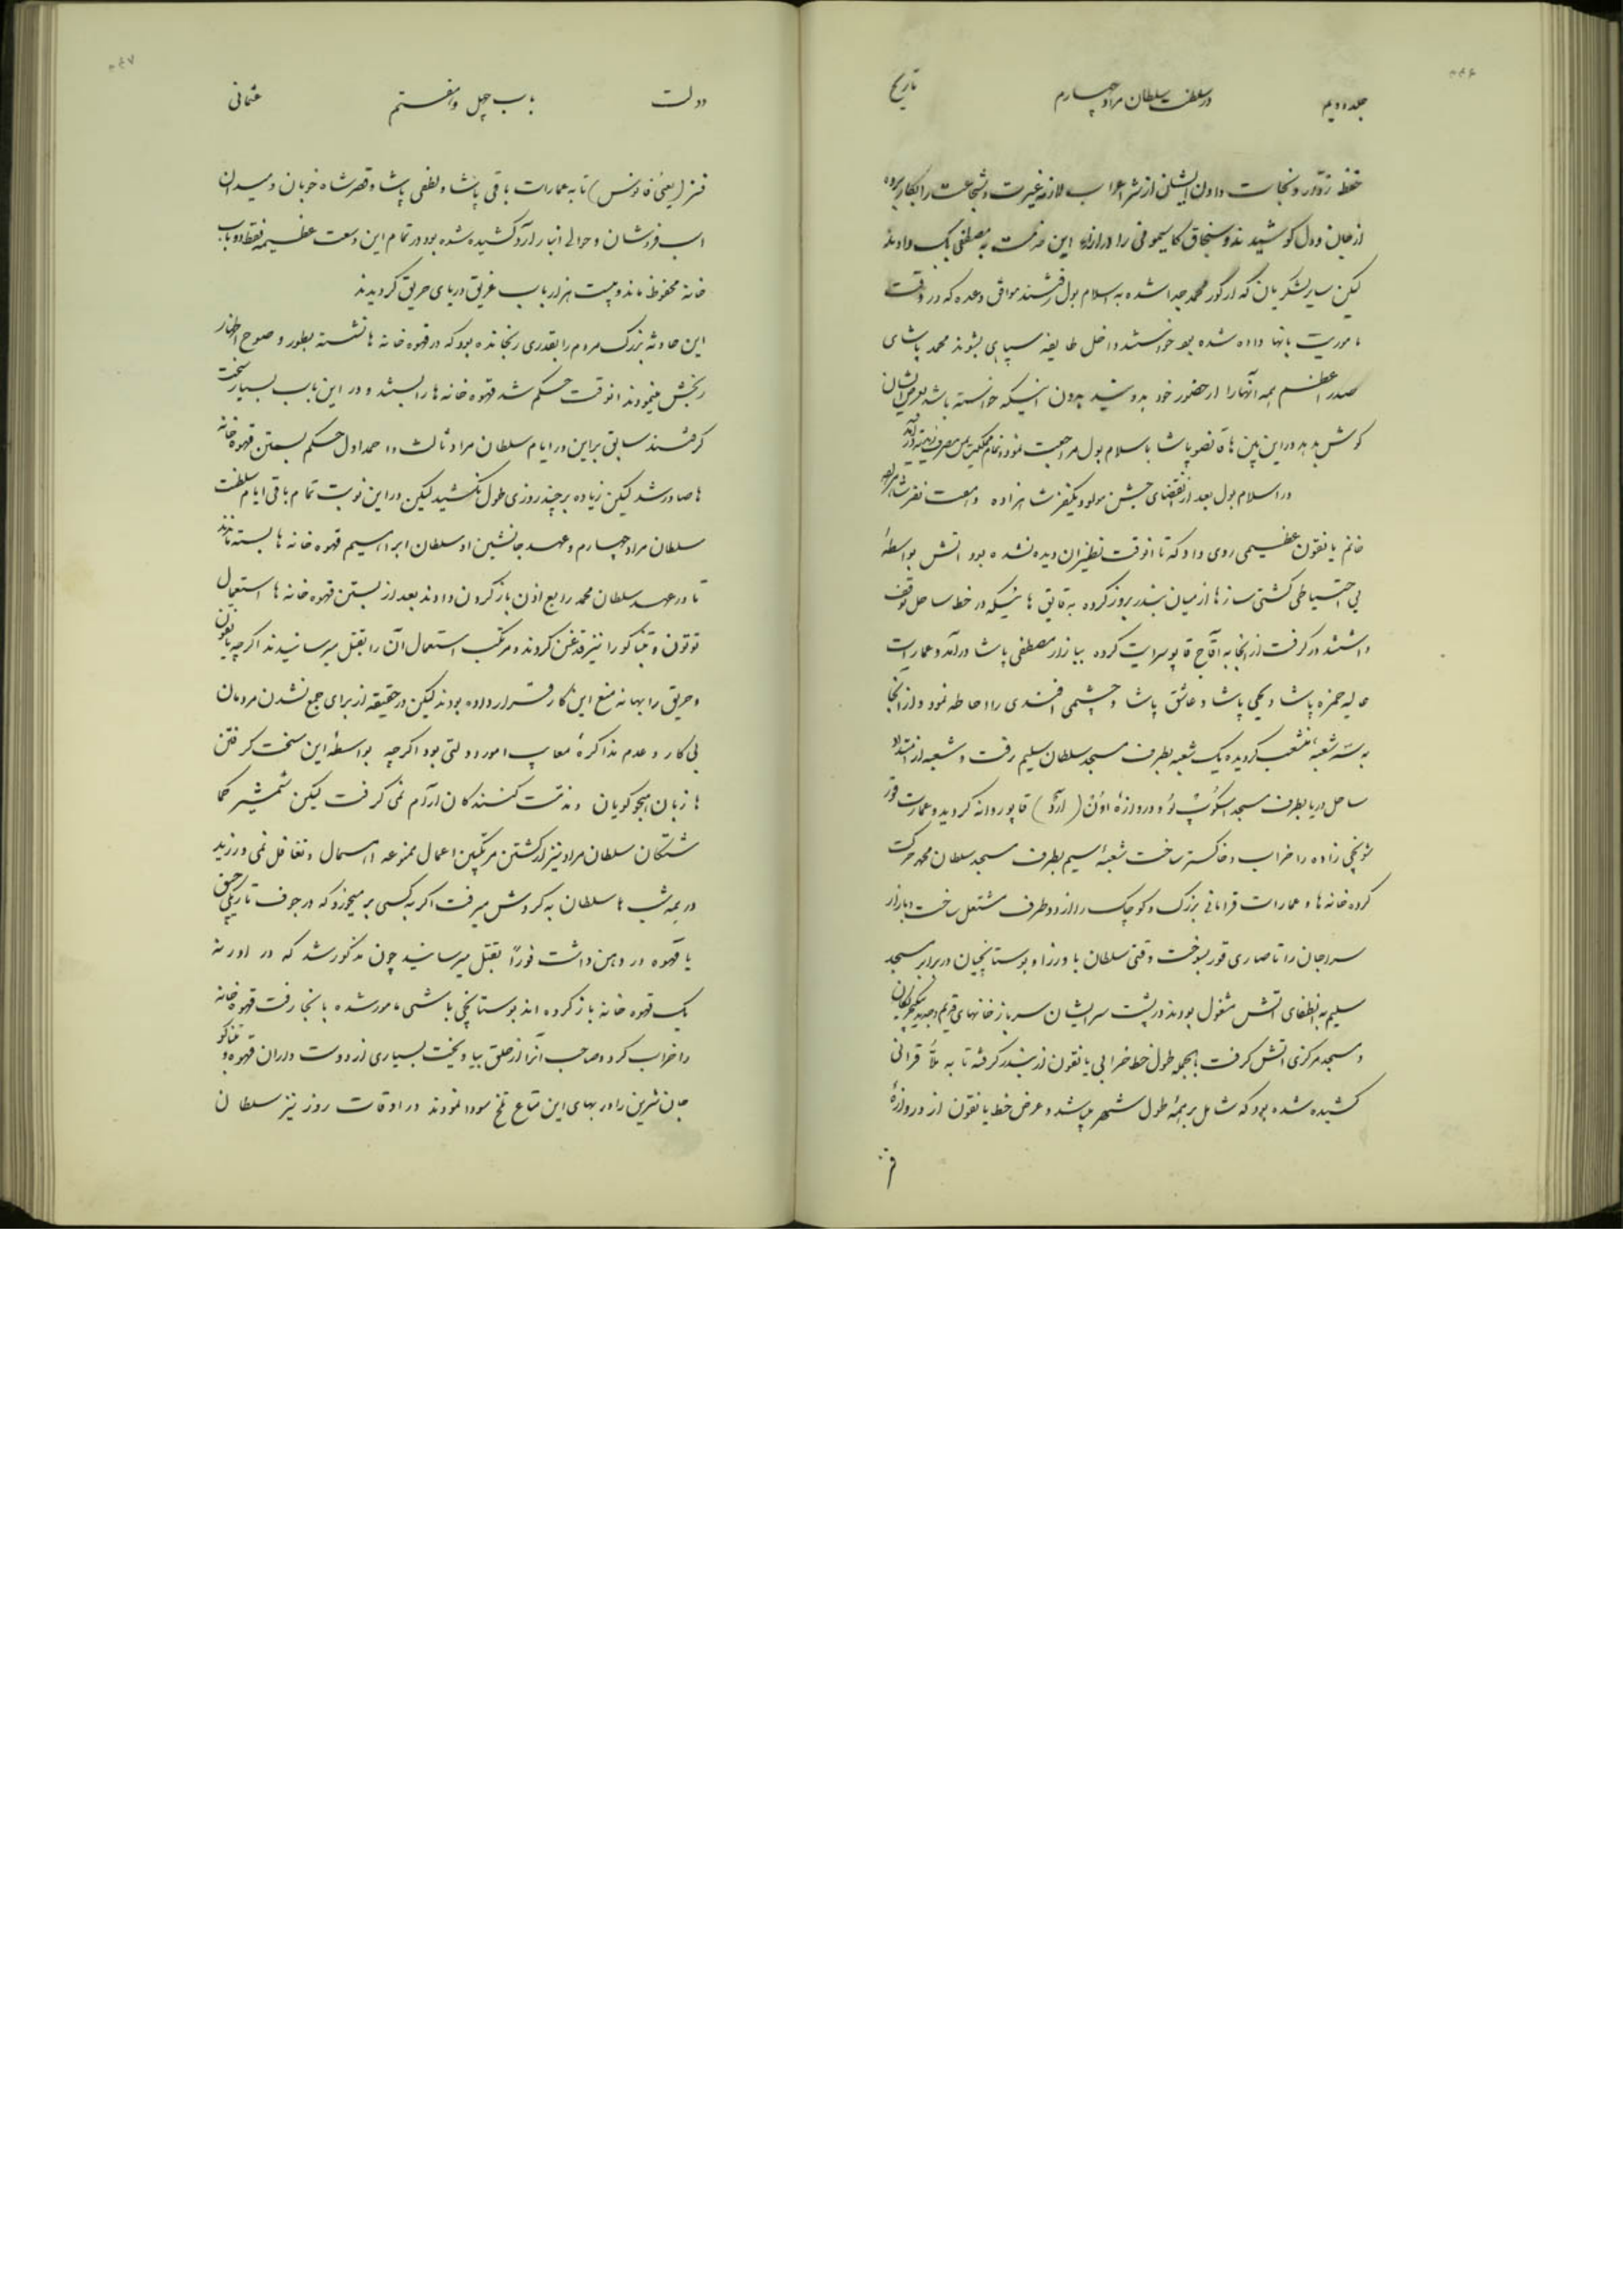 جلد دویم در سلطنت سلطان مراد چهارم تاریخ
حفظ زوار و نجات دادن ایشان از شر اعراب لازمه غیرت و شجاعت را بکار برده
از جان و دل کوشیدند و سنجاق را در ازاء این خدمت به مصطفی بک دادند
لیکن سایر لشکریان که از کور محمد جدا شده به اسلامبول رفتند موافق وعده که در وقت
ماموریت بانها داده شده بود خواستند داخل طایفه سپاهی بشوند محمد پاشای
صدر اعظم همه آنهارا از حضور خود بدون اینکه خواسته باشد بعرض ایشان
کوش بدهد در این بین ها قانصو پاشا باسلامبول مراجعت نمود
در اسلامبول بعد از انقضای جشن مولود یکنفر شاهزاده
خانم یانقون عظیمی روی داد که تا انوقت نظیر ان دیده نشده بود اتش بواسطهٔ
بی احتیاطی کشتی سازها از میان بندر بروز کرده به قایق هائیکه در خط ساحل توقف
داشتند در کرفت از انجا به آقاج قاپو سرایت کرده ببازار مصطفی پاشا درآمد و عمارات
عالیه حمزه پاشا و یحیی پاشا و عاشق پاشا و چشمی افندی را احاطه نمود و از انجا
به سه شعبه منشعب کردیده یک شعبه بطرف مسجد سلطان سلیم رفت و شعبه از امتداد
ساحل دریا بطرف مسجد اسکوپ لو و دروازهٔ اون (آرد) قاپو روانه کردید و عمارت
زاده را خراب و خاکستر ساخت شعبهٔ سیم بطرف مسجد سلطان محمد حرکت
کرده خانه ها و عمارات قرامانی بزرک و کوچک را از دو طرف مشتعل ساخت و بازار
سراجان را تا صاری قور بسوخت وقتی سلطان با وزرا و بوستانچیان در برابر مسجد
سلیم به انطفای اتش مشغول بودند در پشت سر ایشان سربازخانهای قدیم و جدید ینکیچریکان
و مسجد مرکزی اتش کرفت بالجمله طول خط خرابی یانقون از بندر کرفته تا به ملا قرانی
کشیده شده بود که شامل بر همهٔ طول شهر میباشد و عرض خط یانقون از دروازهٔ
فنر
دولت باب چهل و هفتم عثمانی
فنر (یعنی فانوس) تا به عمارات باقی پاشا و لطفی پاشا و قصر شاه خوبان و میدان
اسب فروشان و حوالی انبار ارد کشیده شده بود در تمام این وسعت عظیمه فقط دو باب
خانه محفوظ ماند و بیست هزار باب غریق دریای حریق کردیدند
این حادثه بزرک مردم را بقدری رنجانده بود که در قهوه خانه ها نشسته بطور وضوح اظهار
رنجش مینمودند انوقت حکم شد قهوه خانه ها را ببستند و در این باب بسیار سخت
کرفتند سابق بر این در ایام سلطان مراد ثالث و احمد اول حکم بستن قهوه خانه
ها صادر شد لیکن زیاده بر چند روزی طول نکشید لیکن در این نوبت تمام باقی ایام سلطنت
سلطان مراد چهارم و عهد جانشین او سلطان ابراهیم قهوه خانه ها بسته ماندند
تا در عهد سلطان محمد رابع اذن باز کردن دادند بعد از بستن قهوه خانه ها استعمال
توتون و تنباکو را نیز قدغن کردند و مرتکب استعمال آن را بقتل میرسانیدند اکرچه یانقون
و حریق را بهانه منع این کار قرار داده بودند لیکن در حقیقه از برای جمع نشدن مردمان
بی کار و عدم مذاکرهٔ معایب امور دولتی بود اکرچه بواسطهٔ این سخت کرفتن
ها زبان هجوکویان و مذمت کنندکان آرام نمی کرفت لیکن شمشیر کما
شتکان سلطان مراد نیز از کشتن مرتکبین اعمال ممنوعه اهمال و تغافل نمی ورزید
در همه شب ها سلطان به کردش میرفت اکر به کسی بر میخورد که در جوف تاریکی چپق
یا قهوه در دهن داشت فوراً بقتل میرسانید چون مذکور شد که در ادرنه
یک قهوه خانه باز کرده اند بوستانچی باشی مامور شده بانجا رفت قهوه خانه
را خراب کرد و صاحب آنرا از حلق بیاویخت بسیاری از دوست داران قهوه و تنباکو
جان شیرین را در بهای این متاع تلخ سودا نمودند در اوقات روز نیز سلطان